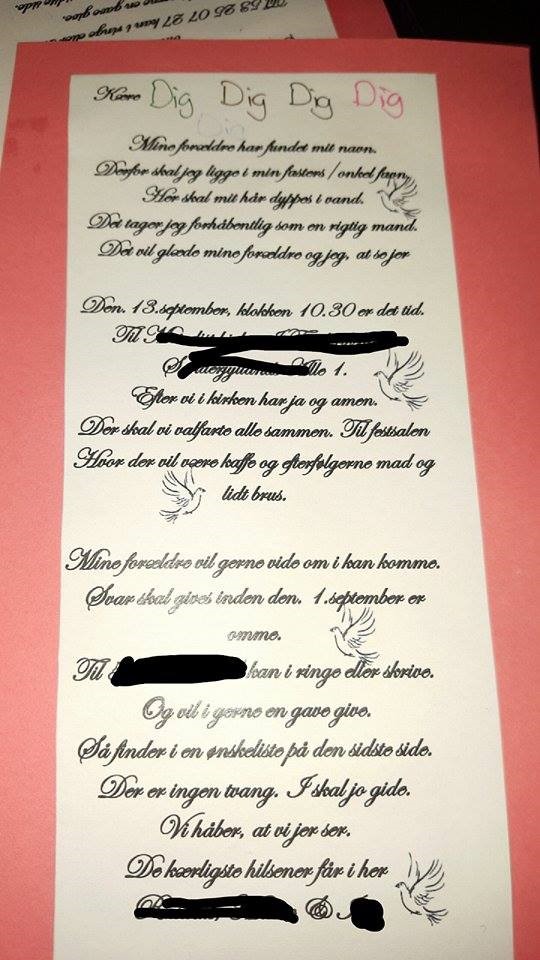 53 25 07 27 kan i ringe eller
en gave give.
Kære Dig Dig Dig Dig
Dig
Mine forældre har fundet mit navn.
Derfor skal jeg ligge i min fasters / onkel favn.
Her skal mit hår dyppes i vand.
Det tager jeg forhåbentlig som en rigtig mand.
Det vil glæde mine forældre og jeg, at se jer
Den. 13.september, klokken 10.30 er det tid.
Til
Alle 1.
Efter vi i kirken har ja og amen.
Der skal vi valfarte alle sammen. Til festsalen
Hvor der vil være kaffe og efterfølgerne mad og
lidt brus.
Mine forældre vil gerne vide om i kan komme.
Svar skal gives inden den. 1.september er
omme.
Til kan i ringe eller skrive.
Og vil i gerne en gave give.
Så finder i en ønskeliste på den sidste side.
Der er ingen tvang. I skal jo gide.
Vi håber, at vi jer ser.
De kærligste hilsener får i her
&